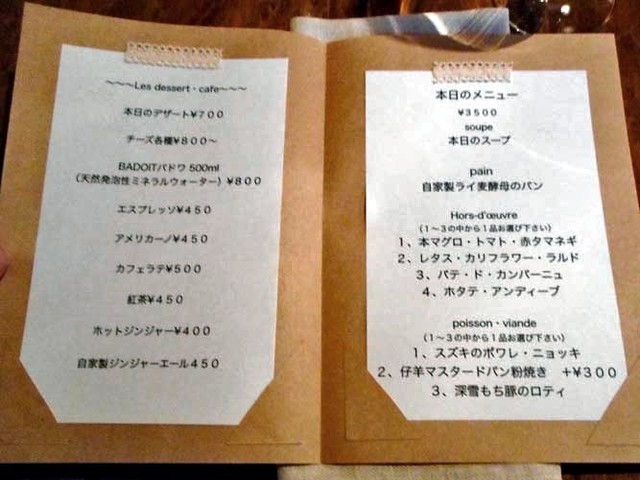 ~~~Les dessert・cafe~~~
本日のデザート¥７００
チーズ各種¥８００～
BADOITバドワ 500ml
（天然発泡性ミネラルウォーター）¥８００
エスプレッソ¥４５０
アメリカーノ¥４５０
カフェラテ¥５００
紅茶¥４５０
ホットジンジャー¥４００
自家製ジンジャーエール４５０
本日のメニュー
¥３５００
soupe
本日のスープ
pain
自家製ライ麦酵母のパン
Hors-d'œuvre
（１～３の中から１品お選び下さい）
１、本マグロ・トマト・赤タマネギ
２、レタス・カリフラワー・ラルド
３、パテ・ド・カンパーニュ
４、ホタテ・アンディーブ
poisson・viande
（１～３の中から１品お選び下さい）
１、スズキのポワレ・ニョッキ
２、仔羊マスタードパン粉焼き　＋¥３００
３、深雪もち豚のロティ